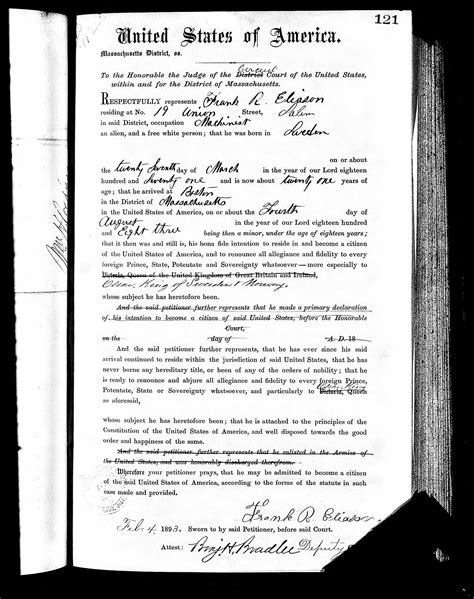 121
United States of America.
Massachusetts District, ss.
Circuit
To the Honorable the Judge of the District Court of the United States,
within and for the District of Massachusetts.
RESPECTFULLY represents Frank R. Eliason
residing at No. 19 Union Street, Salem
in said District, occupation Machinist
an alien, and a free white person; that he was born in Sweden
on or about
the twenty Seventh day of March in the year of our Lord eighteen
hundred and Seventy one and is now about twenty one years of
age; that he arrived at Boston
in the District of Massachusetts
in the United States of America, on or about the Fourth day of
August in the year of our Lord eighteen hundred
and Eight three being then a minor, under the age of eighteen years;
that it then was and still is, his bona fide intention to reside in and become a citizen
of the United States of America, and to renounce all allegiance and fidelity to every
foreign Prince, State, Potentate and Sovereignty whatsoever — more especially to
Victoria, Queen of the United Kingdom of Great Britain and Ireland,
Oscar, King of Sweden & Norway.
whose subject he has heretofore been.
And the said petitioner further represents that he made a primary declaration
of his intention to become a citizen of said United States, before the Honorable
Court,
on the day of A. D. 18
And the said petitioner further represents, that he has ever since his said
arrival continued to reside within the jurisdiction of said United States, that he has
never borne any hereditary title, or been of any of the orders of nobility; that he
is ready to renounce and abjure all allegiance and fidelity to every foreign Prince,
Potentate, State or Sovereignty whatsoever, and particularly to Victoria, Queen
as aforesaid,
whose subject he has heretofore been; that he is attached to the principles of the
Constitution of the United States of America, and well disposed towards the good
order and happiness of the same.
And the said petitioner further represents that he enlisted in the Armies of
the United States, and was honorably discharged therefrom.
Wherefore your petitioner prays, that he may be admitted to become a citizen
of the said United States of America, according to the forms of the statute in such
case made and provided.
Frank R. Eliason
Feb. 4. 1893. Sworn to by said Petitioner, before said Court.
Attest: Benj. H. Bradlee Deputy